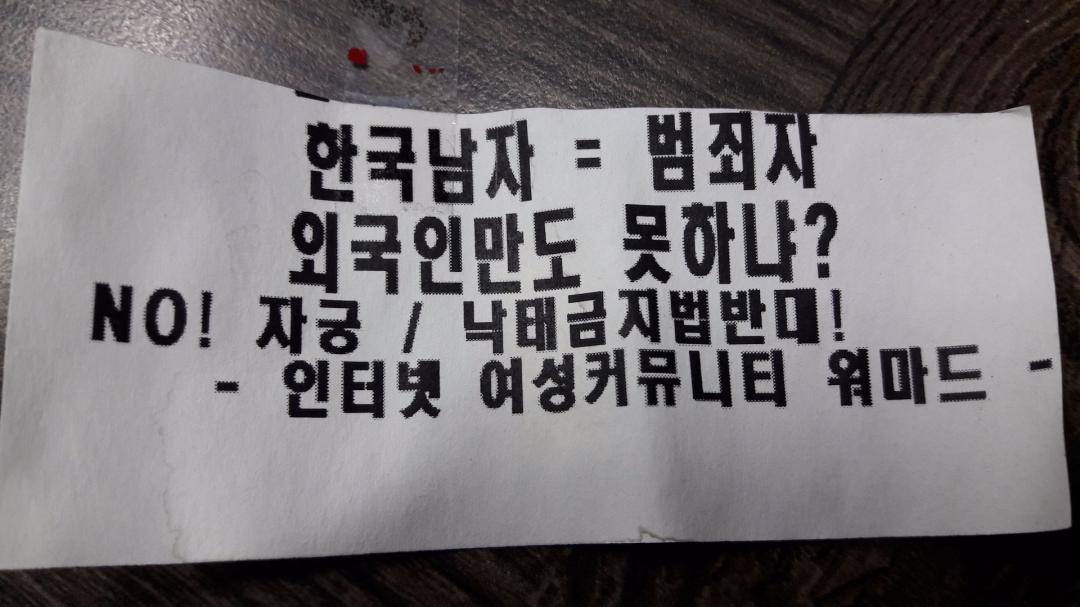 한국남자 = 범죄자
외국인만도 못하냐?
NO! 자궁 / 낙태금지법반대!
- 인터넷 여성커뮤니티 워마드 -